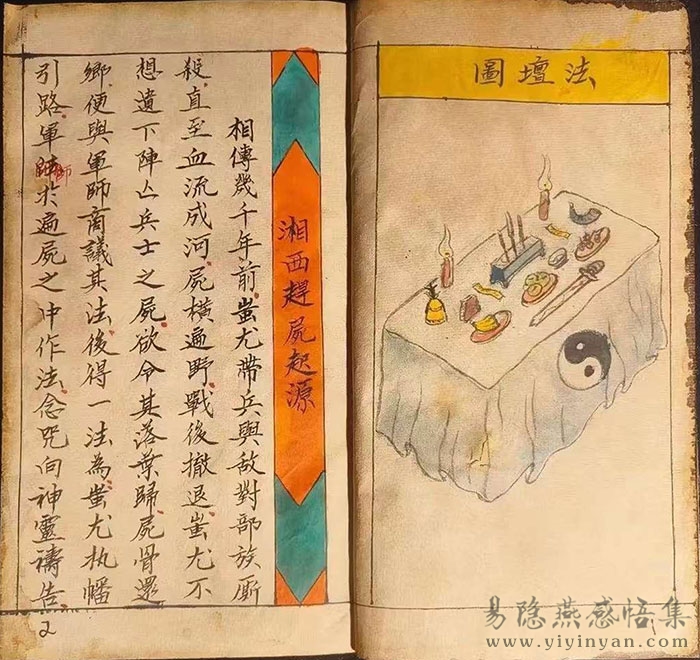 法壇圖
湘西趕屍起源
相傳幾千年前.蚩尤帶兵與敵對部族厮
殺.直至血流成河.屍橫遍野.戰後撤退.蚩尤不
想遺下陣亡兵士之屍.欲令其落葉歸.屍骨還
鄉.便與軍師商議其法.後得一法為.蚩尤执幡
引路.軍師於遍屍之中作法.念咒向神靈禱告.
2
易隐燕感悟集
www.yiyinyan.com